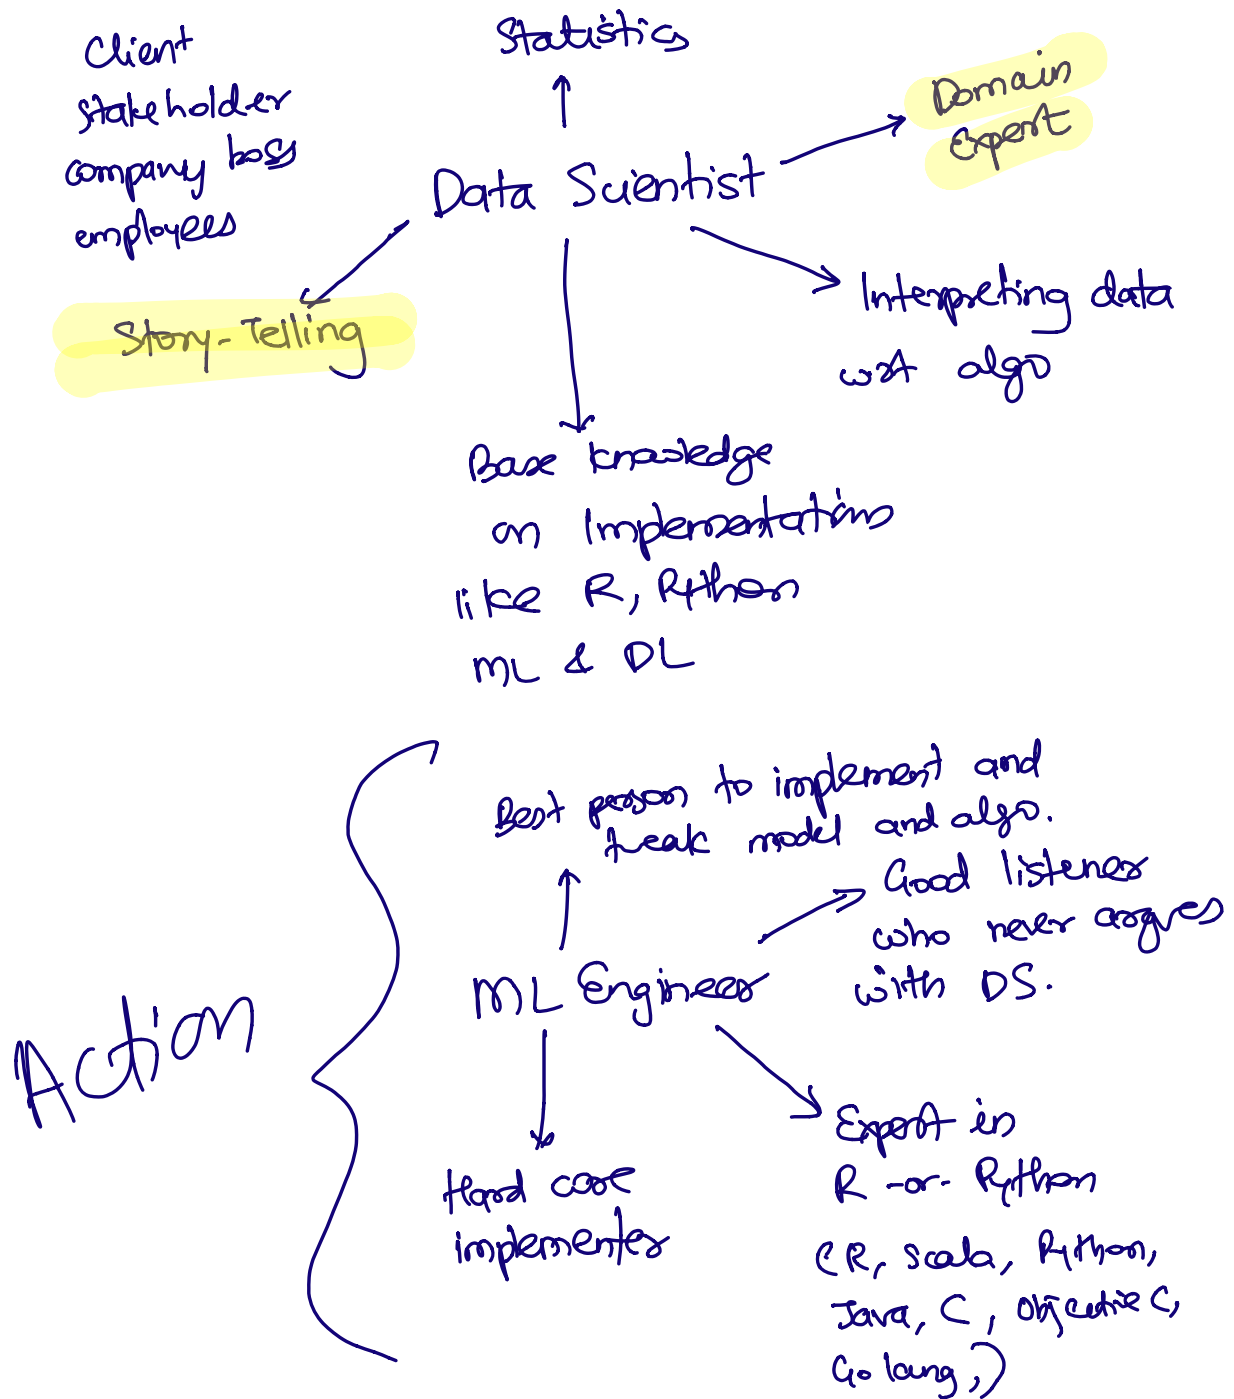 Client
stakeholder
company boss
employees
Statistics
Domain
Expert
Data Scientist
Story-Telling
Interpreting data
wrt algo
Base knowledge
on Implementations
like R, Python
ML & DL
Best person to implement and
tweak model and algo.
Good listener
who never argues
with DS.
ML Engineer
Action
Hard core
implementer
Expert in
R -or- Python
(R, Scala, Python,
Java, C, Objective C,
Go lang,)